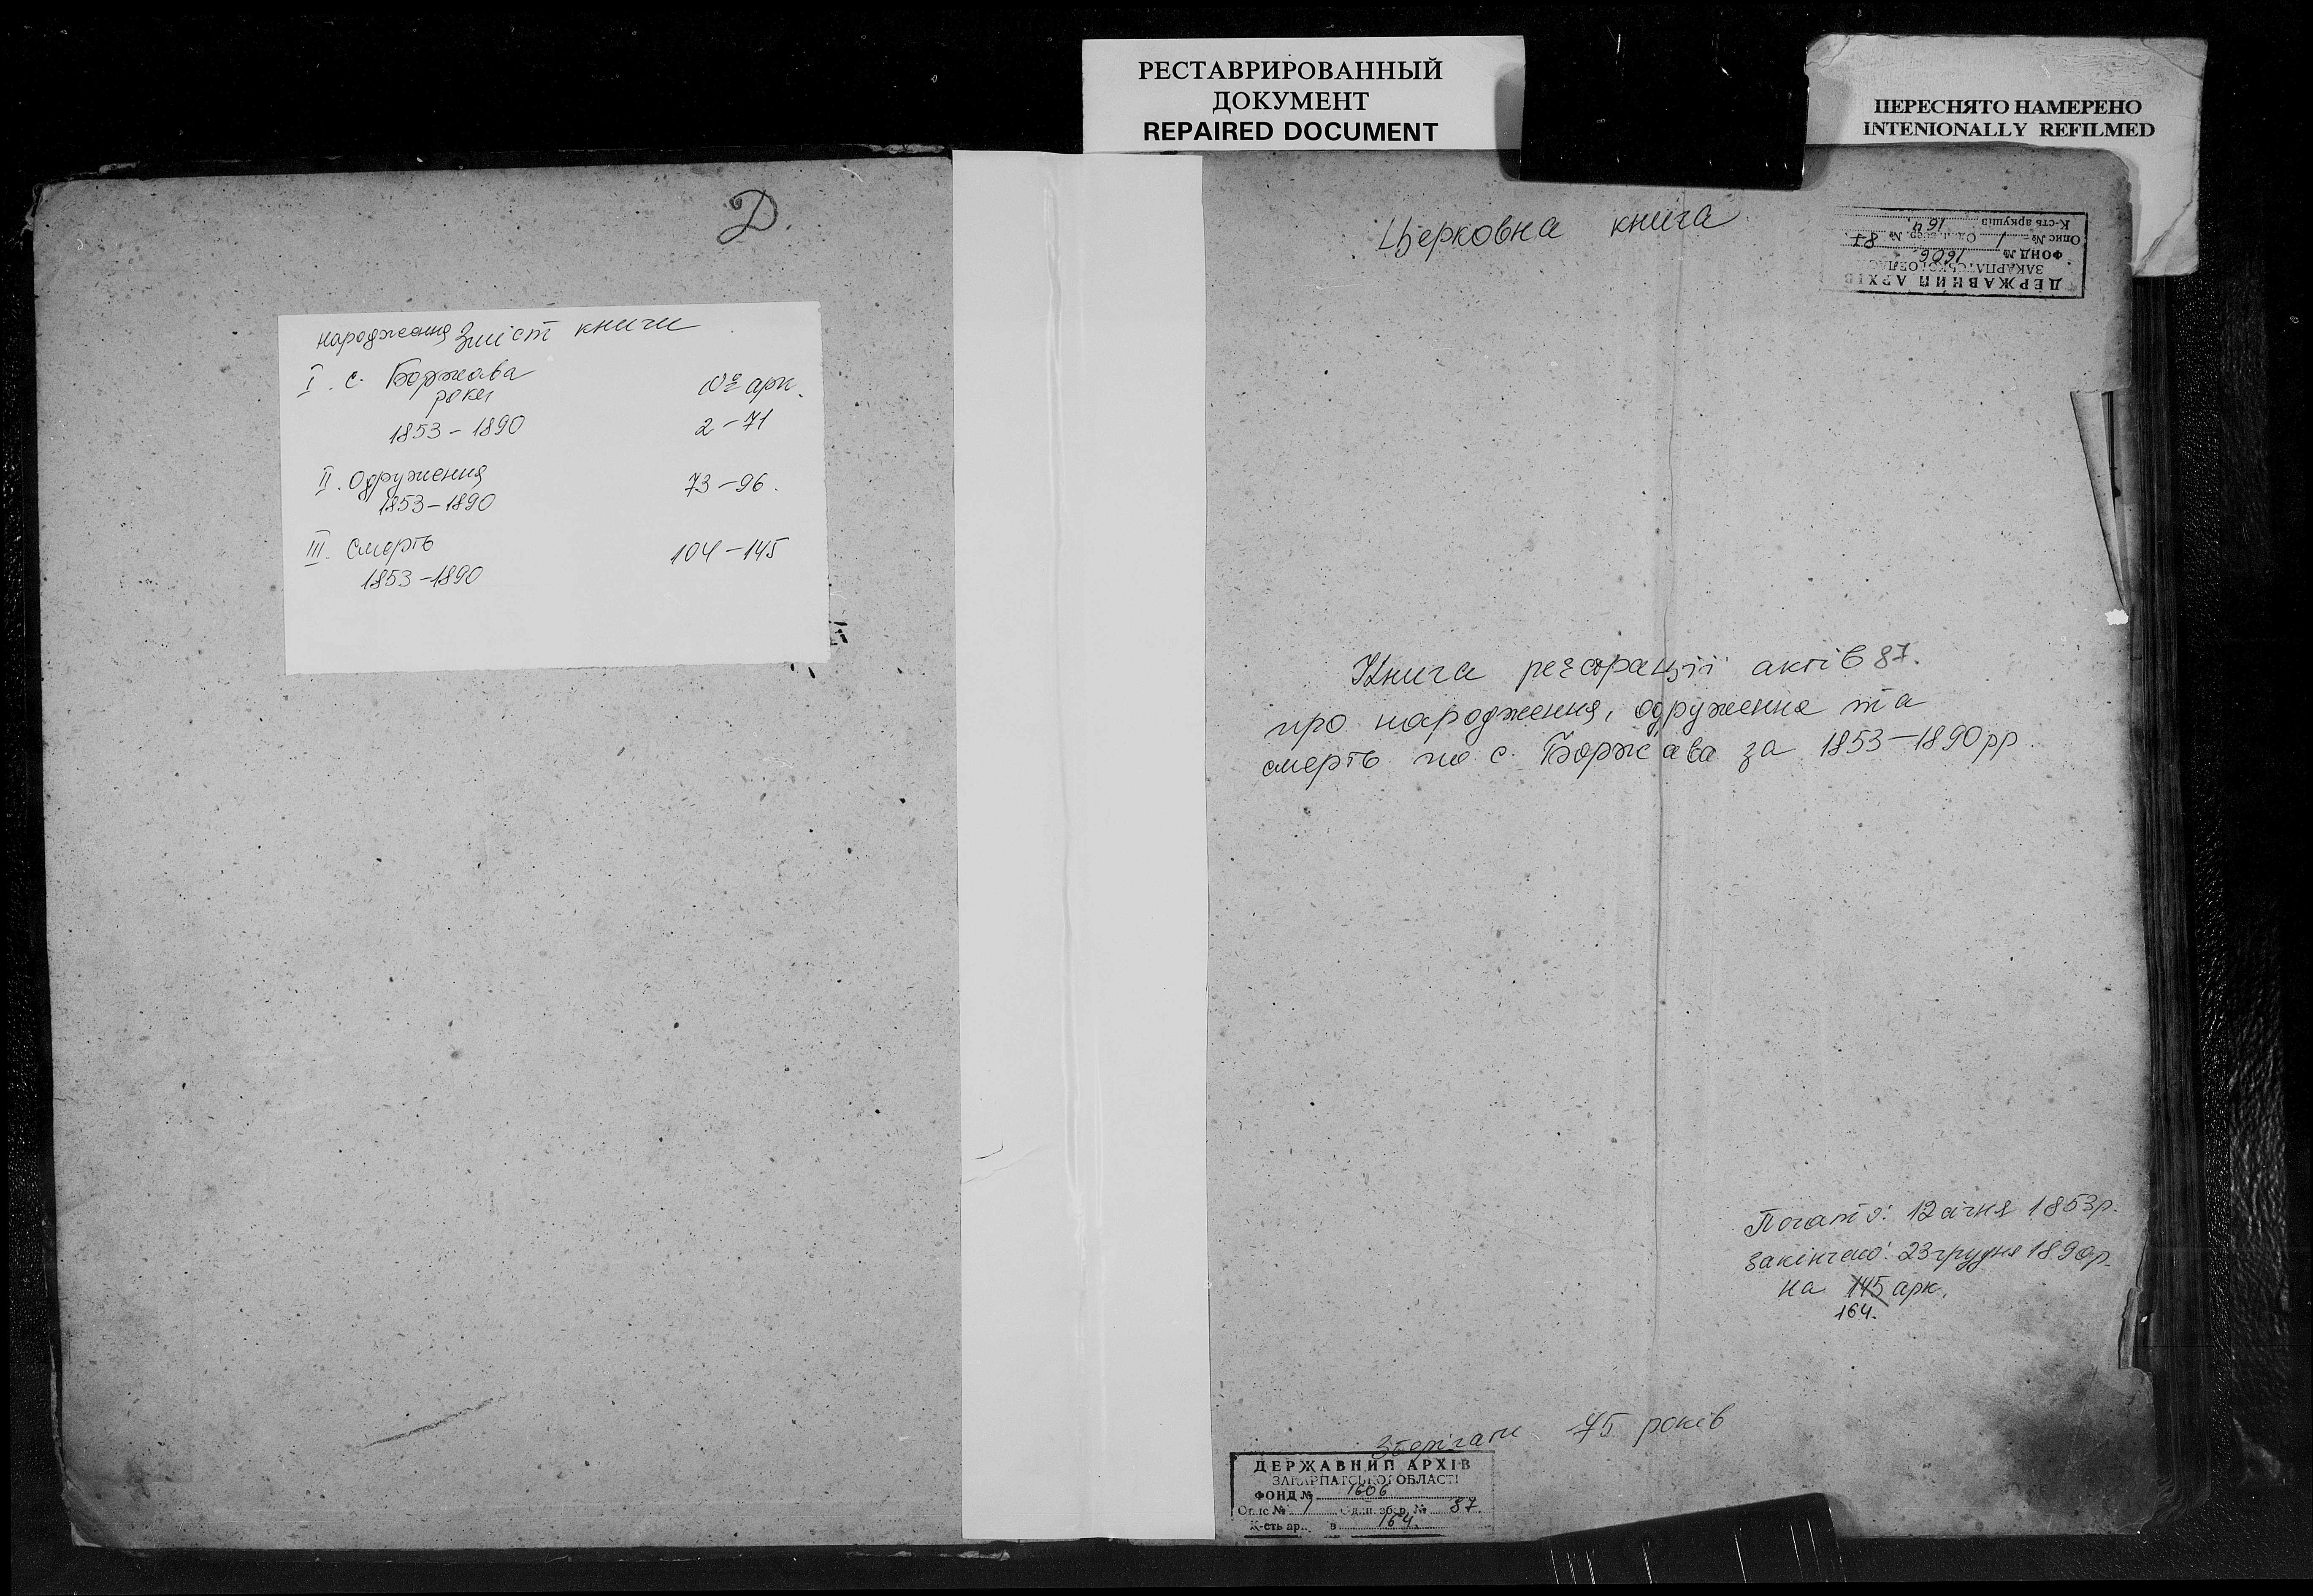 РЕСТАВРИРОВАННЫЙ
ДОКУМЕНТ
REPAIRED DOCUMENT
ПЕРЕСНЯТО НАМЕРЕНО
INTENIONALLY REFILMED
Д.
народження Зміст книги
I. с. Боржава № арк.
роки
1853-1890 2-71
II. Одруження 73-96.
1853-1890
III. Смерть 104-145
1853-1890
Церковна книга
ДЕРЖАВНИЙ АРХІВ
ЗАКАРПАТСЬКОЇ ОБЛАС
ФОНД № 1606
Опис № 1 Од. збер. № 87.
К-сть аркушів 164.
Книга регстрації актів 87.
про народження, одруження та
смерть по с. Боржава за 1853-1890 рр.
Почато: 12 січня 1853 р.
Закінчено: 23 грудня 1890 р.
на 145 арк.
164.
Зберігати 75 років
ДЕРЖАВНИЙ АРХІВ
ЗАКАРПАТСЬКОЇ ОБЛАСТІ
ФОНД № 1606
Опис № 1 Од. зб.р. № 87.
К-сть ар. в 164.